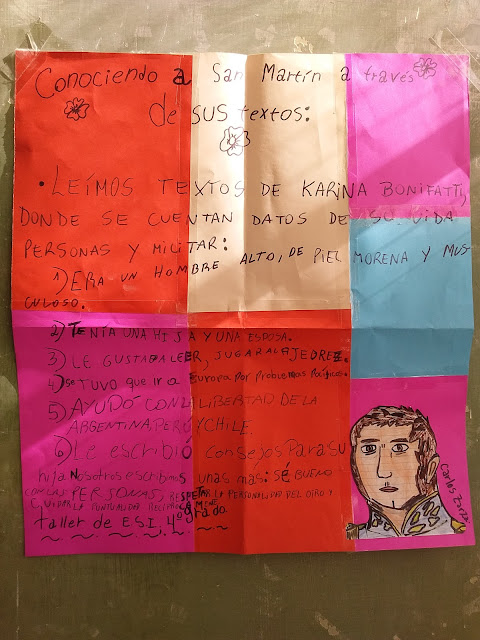 Conociendo a San Martín a través
de sus textos:
• LEÍMOS TEXTOS DE KARINA BONIFATTI,
DONDE SE CUENTAN DATOS DE SU VIDA
PERSONAS Y MILITAR:
1) ERA UN HOMBRE ALTO, DE PIEL MORENA Y MUS-
CULOSO.
2) TENÍA UNA HIJA Y UNA ESPOSA.
3) LE GUSTABA LEER, JUGAR AL AJEDREZ.
4) se TUVO que ir a Europa por problemas Políticos.
5) AYUDÓ CON LA LIBERTAD DE LA
ARGENTINA PERÚ Y CHILE.
6) Le escribió consejos Para su
hija Nosotros escribimos unas mas: SÉ BUENO
CON LAS PERSONAS, RESPETAR LA PERSONALIDAD DEL OTRO Y
CUIDAR LA PUNTUALIDAD
taller de ESI. 4º grado.
Carlos